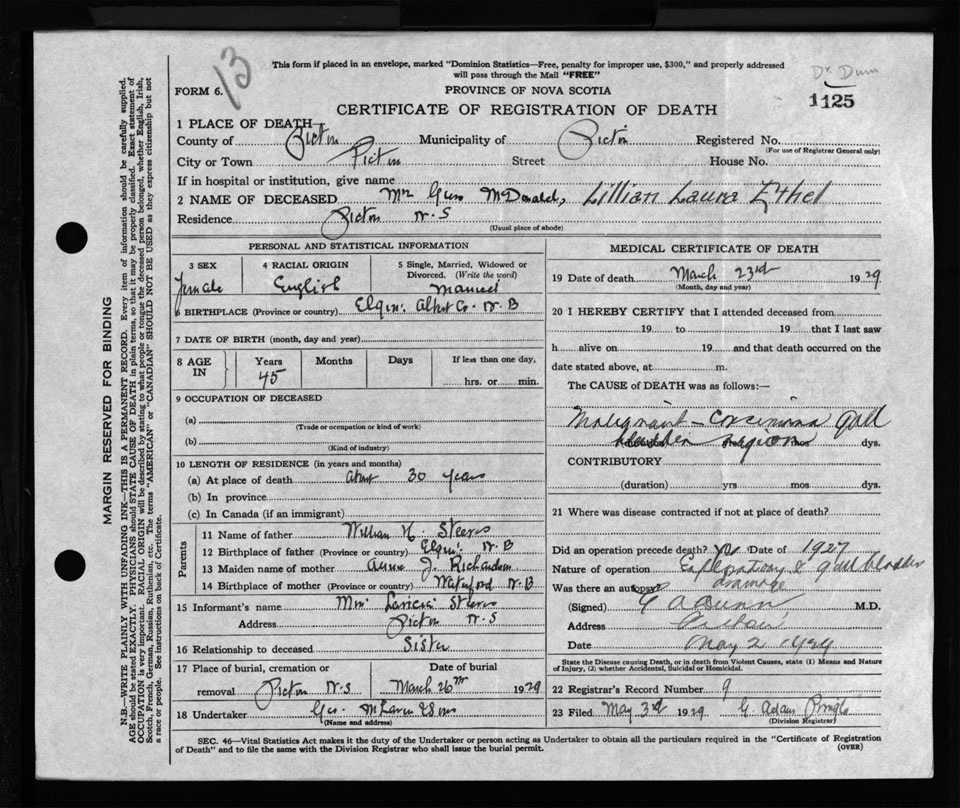 13
This form if placed in an envelope, marked "Dominion Statistics—Free, penalty for improper use, $300," and properly addressed
will pass through the Mail "FREE"
Dr Dunn
FORM 6.
PROVINCE OF NOVA SCOTIA
1125
CERTIFICATE OF REGISTRATION OF DEATH
1 PLACE OF DEATH—
County of Pictou Municipality of Pictou Registered No.
(For use of Registrar General only)
City or Town Pictou Street House No.
If in hospital or institution, give name
2 NAME OF DECEASED Mrs McDonald, Lillian Laura Ethel
Residence Pictou N.S
(Usual place of abode)
PERSONAL AND STATISTICAL INFORMATION
3 SEX 4 RACIAL ORIGIN 5 Single, Married, Widowed or
Divorced. (Write the word)
Female English Married
6 BIRTHPLACE (Province or country) Elgin Albert Co. N.B
7 DATE OF BIRTH (month, day and year)
8 AGE IN Years Months Days If less than one day,
45 hrs. or min.
9 OCCUPATION OF DECEASED
(a)
(Trade or occupation or kind of work)
(b)
(Kind of industry)
10 LENGTH OF RESIDENCE (in years and months)
(a) At place of death about 30 years
(b) In province
(c) In Canada (if an immigrant)
Parents
11 Name of father William H. Steeves
12 Birthplace of father (Province or country) Elgin N.B
13 Maiden name of mother Annie J. Richardson
14 Birthplace of mother (Province or country) Waterford N.B
15 Informant's name Steeves
Address Pictou N.S
16 Relationship to deceased Sister
17 Place of burial, cremation or Date of burial
removal Pictou N.S March 26th 1929
18 Undertaker Geo. McLaren & Sons
(Name and address)
MEDICAL CERTIFICATE OF DEATH
19 Date of death March 23rd 1929
(Month, day and year)
20 I HEREBY CERTIFY that I attended deceased from
19 to 19 that I last saw
h alive on 19 and that death occurred on the
date stated above, at m.
The CAUSE of DEATH was as follows:—
Malignant – Carcinoma Gall
bladder region dys.
CONTRIBUTORY
(duration) yrs mos dys.
21 Where was disease contracted if not at place of death?
Did an operation precede death? Yes Date of 1927
Nature of operation Exploratory & gall bladder
drainage
Was there an autopsy?
(Signed) G A Dunn M.D.
Address Pictou
Date May 2 1929
State the Disease causing Death, or in death from Violent Causes, state (1) Means and Nature
of Injury, (2) whether Accidental, Suicidal or Homicidal.
22 Registrar's Record Number 9
23 Filed May 3rd 1929 G. Adam Pringle
(Division Registrar)
SEC. 46—Vital Statistics Act makes it the duty of the Undertaker or person acting as Undertaker to obtain all the particulars required in the "Certificate of Registration
of Death" and to file the same with the Division Registrar who shall issue the burial permit.
(OVER)
MARGIN RESERVED FOR BINDING
N.B.—WRITE PLAINLY WITH UNFADING INK—THIS IS A PERMANENT RECORD. Every item of information should be carefully supplied.
AGE should be stated EXACTLY. PHYSICIANS should STATE CAUSE OF DEATH in plain terms, so that it may be properly classified. Exact statement of
OCCUPATION is very important. RACIAL ORIGIN will be described by stating to what people or tongue the deceased person belonged, whether English, Irish,
Scotch, French, German, Russian, Ruthenian, etc. The terms "AMERICAN" or "CANADIAN" SHOULD NOT BE USED as they express citizenship but not
a race or people. See instructions on back of Certificate.